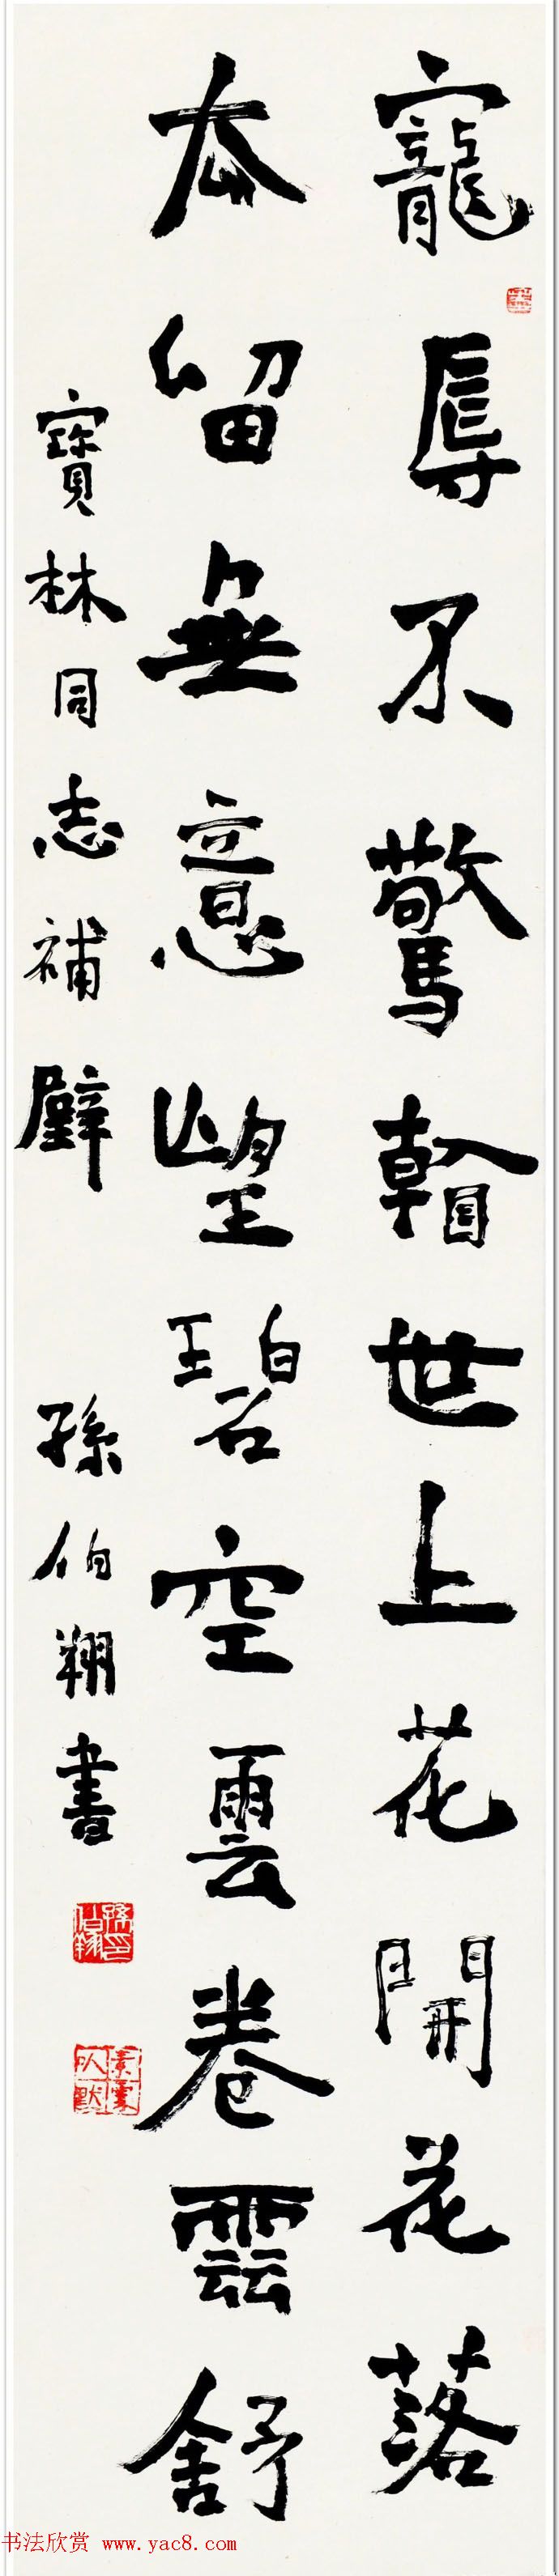 寵辱不驚翰世上花開花落
去留無意望碧空雲卷雲舒
寶林同志補壁
孫伯翔書
书法欣赏 www.yac8.com